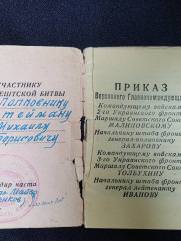 УЧАСТНИКУ
БИТВЫ
Михаилу
ПРИКАЗ
Верховного Главнокомандующего
Командующему войсками
2-го Украинского фронта
Маршалу Советского Союза
МАЛИНОВСКОМУ
Начальнику штаба фронта
генерал-полковнику
ЗАХАРОВУ
Командующему войсками
3-го Украинского фронта
Маршалу Советского Союза
ТОЛБУХИНУ
Начальнику штаба фронта
генерал-лейтенанту
ИВАНОВУ